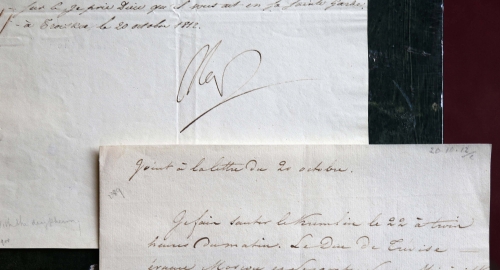 Sur ce je prie Dieu qu'il vous ait en sa sainte garde
à Troitskoe, le 20 octobre 1812.
Nap
20-10-12
Joint à la lettre du 20 octobre.
Je fais sauter le Kremlin le 22 à trois
heures du matin. Le Duc de Trevise
évacue Moscou